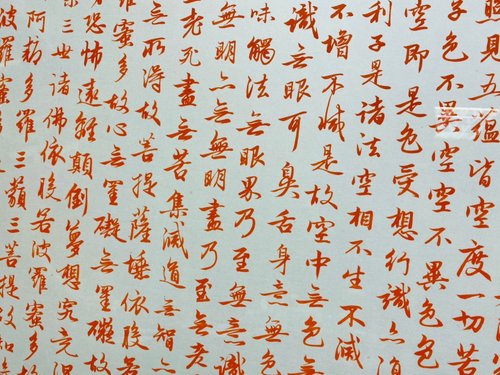 照見五蘊皆空度一切苦
子色不異空空不異色色
空即是色受想行識亦
利子是諸法空相不生不滅
不增不減是故空中無色無
識無眼耳鼻舌身意無色
味觸法無眼界乃至無意識
無明亦無無明盡乃至無老
老死盡無苦集滅道無智亦
無所得故菩提薩埵依般若
羅蜜多故心無罣礙無罣礙故
恐怖遠離顛倒夢想究竟涅
三世諸佛依般若波羅蜜多故
阿耨多羅三藐三菩提故知
波羅蜜多